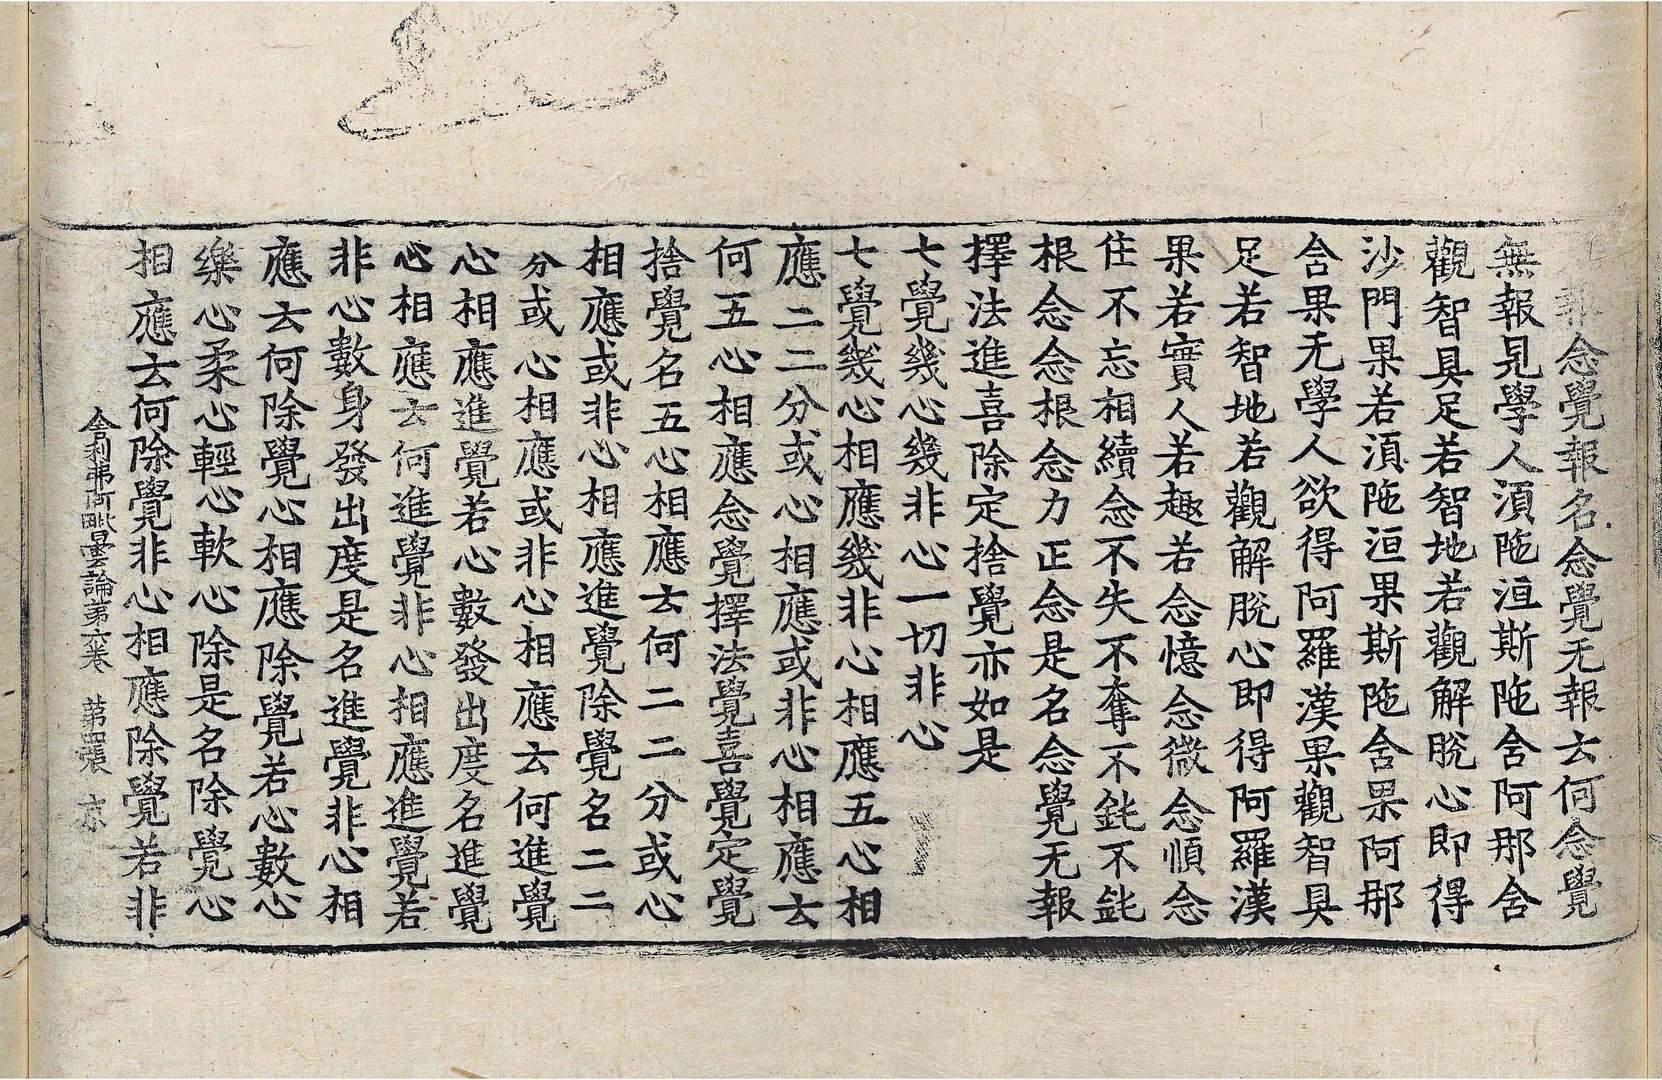 報念覺報名念覺无報云何念覺
無報見學人須陁洹斯陁含阿那含
觀智具足若智地若觀解脫心即得
沙門果若須陁洹果斯陁含果阿那
含果无學人欲得阿羅漢果觀智具
足若智地若觀解脫心即得阿羅漢
果若實人若趣若念憶念微念順念
住不忘相續念不失不奪不鈍不鈍
根念念根念力正念是名念覺无報
擇法進喜除定捨覺亦如是
七覺幾心幾非心一切非心
七覺幾心相應幾非心相應五心相
應二二分或心相應或非心相應云
何五心相應念覺擇法覺喜覺定覺
捨覺名五心相應云何二二分或心
相應或非心相應進覺除覺名二二
分或心相應或非心相應云何進覺
心相應進覺若心數發出度名進覺
心相應云何進覺非心相應進覺若
非心數身發出度是名進覺非心相
應云何除覺心相應除覺若心數心
樂心柔心輕心軟心除是名除覺心
相應云何除覺非心相應除覺若非
舍利弗阿毗曇論第六卷 第四張 京